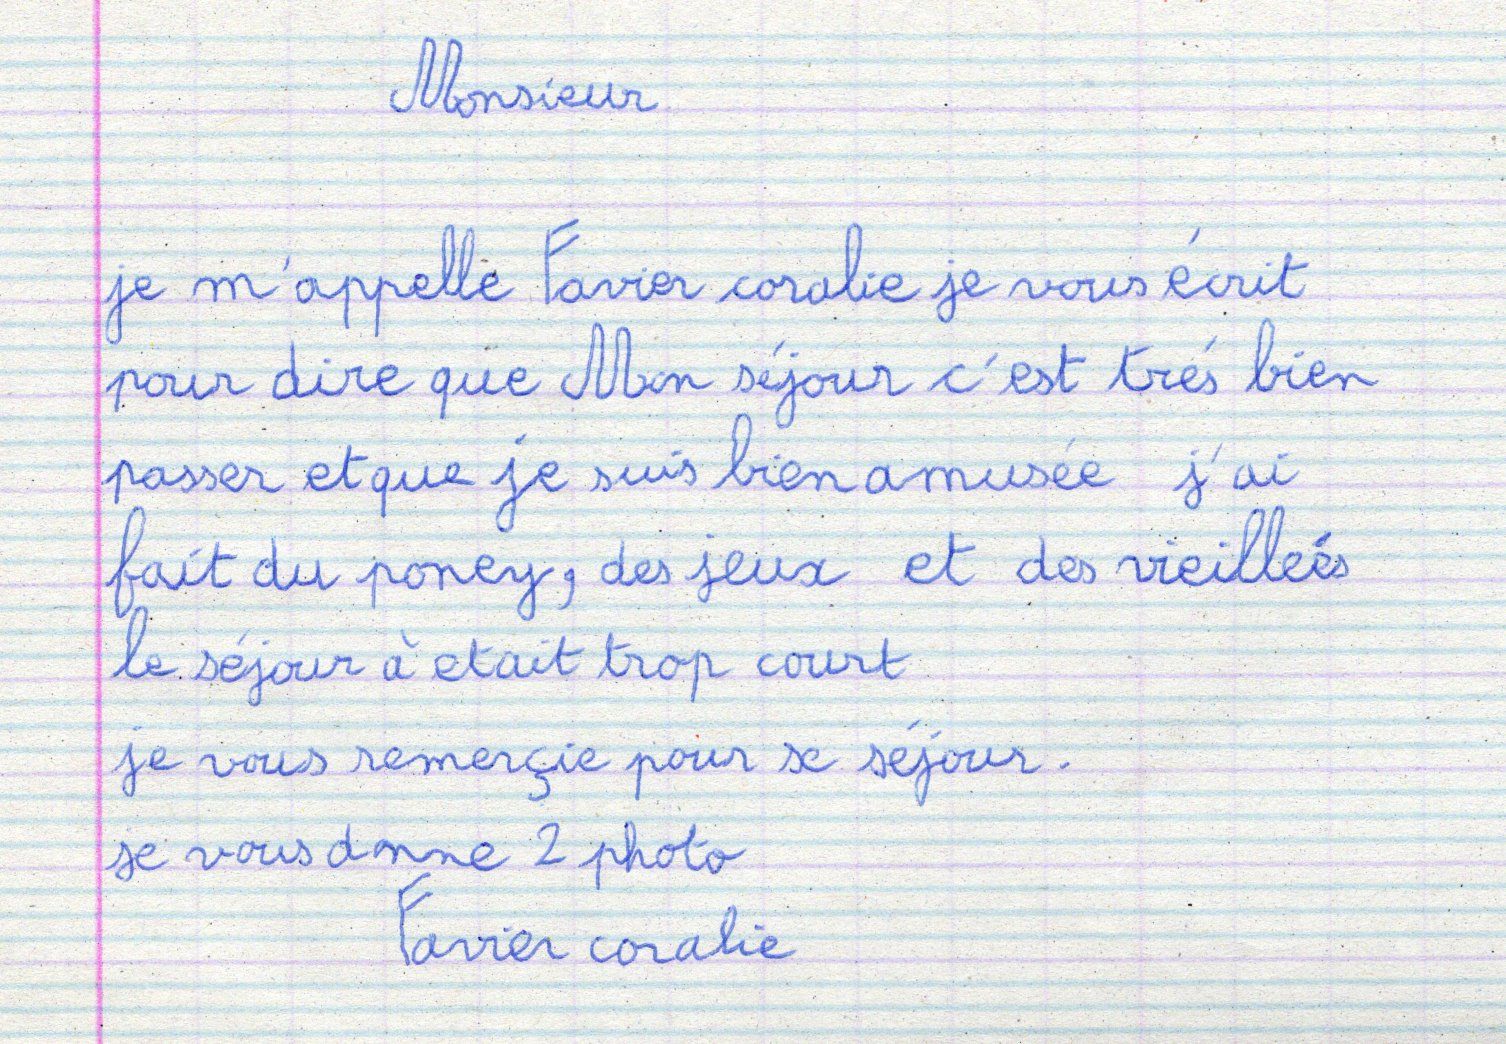 Monsieur
je m'appelle Favier coralie je vous écrit
pour dire que Mon séjour c'est trés bien
passer et que je suis bien amusée j'ai
fait du poney, des jeux et des vieilleés
le séjour à etait trop court
je vous remerçie pour se séjour.
je vous donne 2 photo
Favier coralie